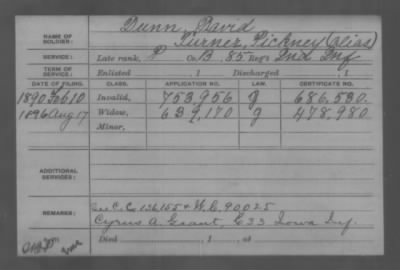 NAME OF SOLDIER: Dunn, David
Turner, Pickney (alias)
SERVICE: Late rank, P Co. B, 85 Reg't Ind Inf
TERM OF SERVICE: Enlisted , 1 Discharged , 1
DATE OF FILING. CLASS. APPLICATION NO. LAW. CERTIFICATE NO.
1890 Feb 10 Invalid, 753,956 g 686,530.
1896 Aug 17 Widow, 639,170 g 478,980
Minor,
ADDITIONAL SERVICES:
REMARKS: C. 126155 & W.C. 90025
Cyrus A. Grant, E 33 Iowa Inf.
Died , 1 , at